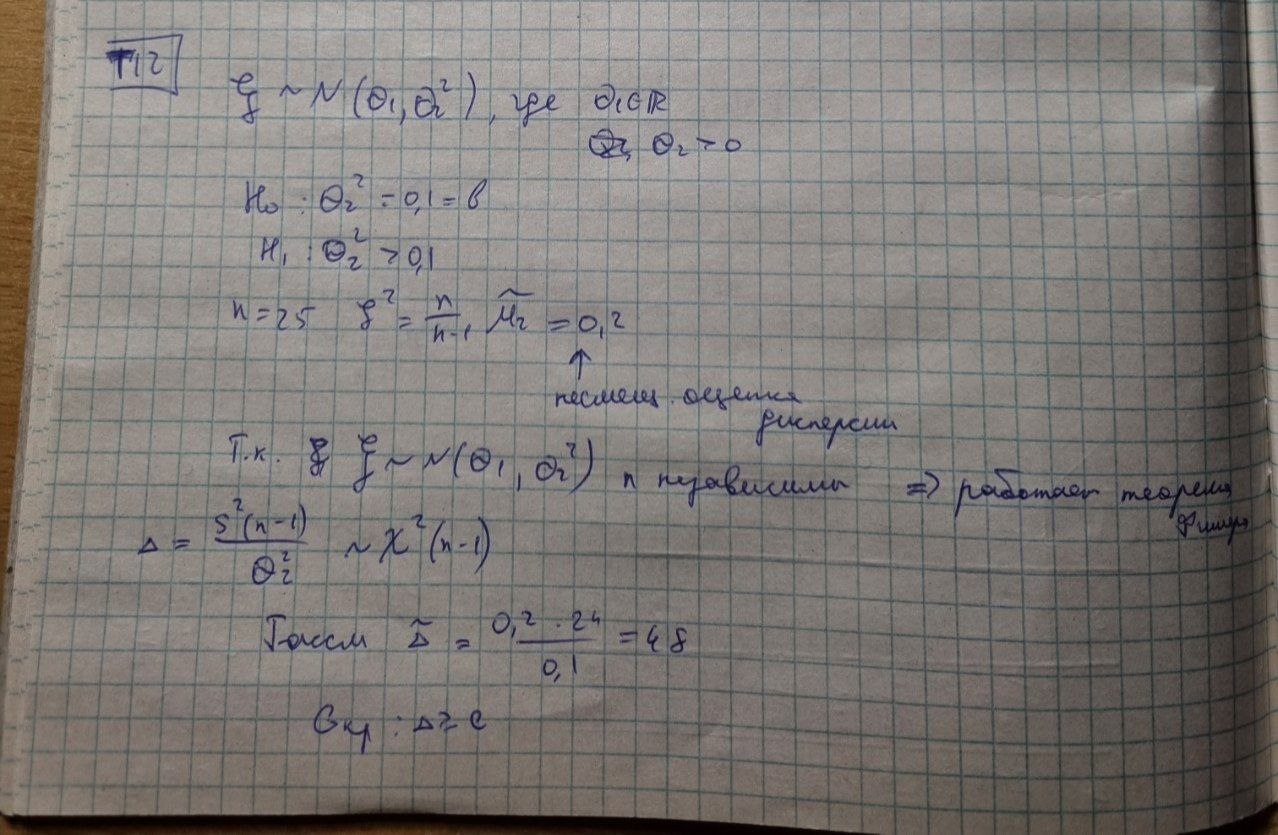 T12
ξ ~ N(θ₁, θ₂²), где θ₁∈ℝ
θ₂ > 0
H₀ : θ₂² = 0,1 = b
H₁ : θ₂² > 0,1
n = 25 S² = n/(n-1) μ̃₂ = 0,2
↑
несмещ. оценка
дисперсии
Т.к. ξ ~ N(θ₁, θ₂²) и независимы => работает теорема
Фишера
Δ = S²(n-1)/θ₂² ~ χ²(n-1)
Рассм Δ̃ = 0,2 · 24 / 0,1 = 48
Gкр : Δ ≥ C